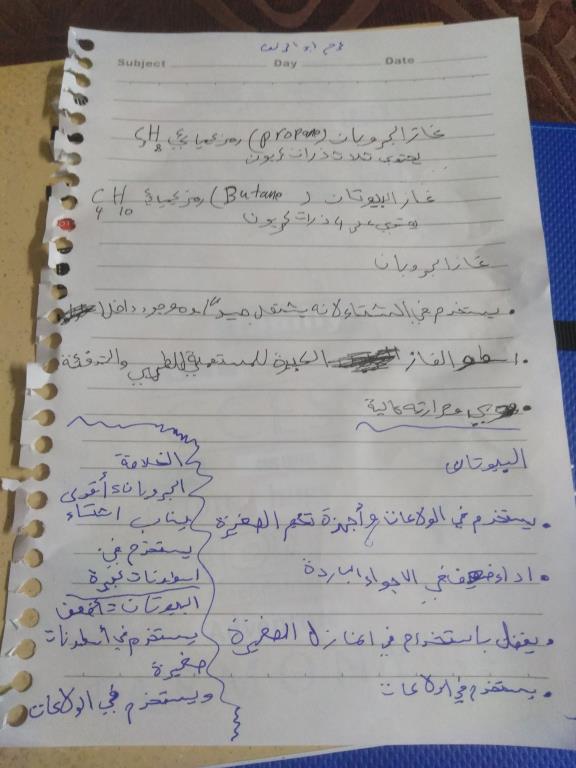 Subject Day Date
غاز البروبان (propane) رمز كيميائي C3H8
يحتوي ثلاث ذرات كربون
غاز البيوتان (Butane) رمز كيميائي C4H10
يحتوي على 4 ذرات كربون
غاز البروبان
• يستخدم في الشتاء لانه يشتغل جيداً موجود داخل
• اسطو الغاز الكبيرة للمستعمل للطهي والتدفئة
• قوي وحرارته عالية
البيوتان
• يستخدم في الولاعات وأجهزة تخيم الصغيرة
• اداء ضعيف في الاجواء الباردة
ويفضل باستخدام في المنازل الصغيرة
• يستخدم في الولاعات
الخلاصة
البروبان = أقوى
يناسب الشتاء
يستخدم في
اسطونات كبيرة
البيوتان = أضعف
يستخدم في أسطونات
صغيرة
ويستخدم في الولاعات